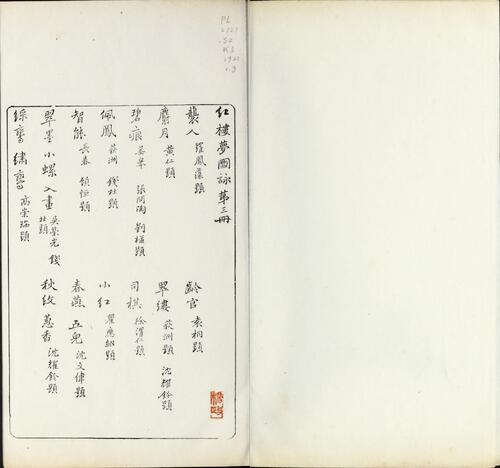 PL
2727
.S2
1921
v.3
紅樓夢圖詠第三冊
襲人 羅鳳藻題
齡官 袁桐題
麝月 黃仁題
翠縷 荻洲題 沈耀鋡題
碧痕 姜皋 張問陶 劉樞題
司棋 徐渭仁題
佩鳳 荻洲 錢杜題
小紅 瞿應紹題
智能 長春 領恒題
春燕 五兒 沈文偉題
翠墨 小螺 入畫 吳榮光 錢杜題
秋紋 蕙香 沈耀鋡題
綵鸞 繡鸞 高崇瑞題